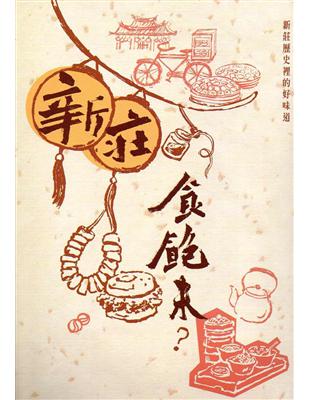 新莊歷史裡的好味道
新莊
食飽未？